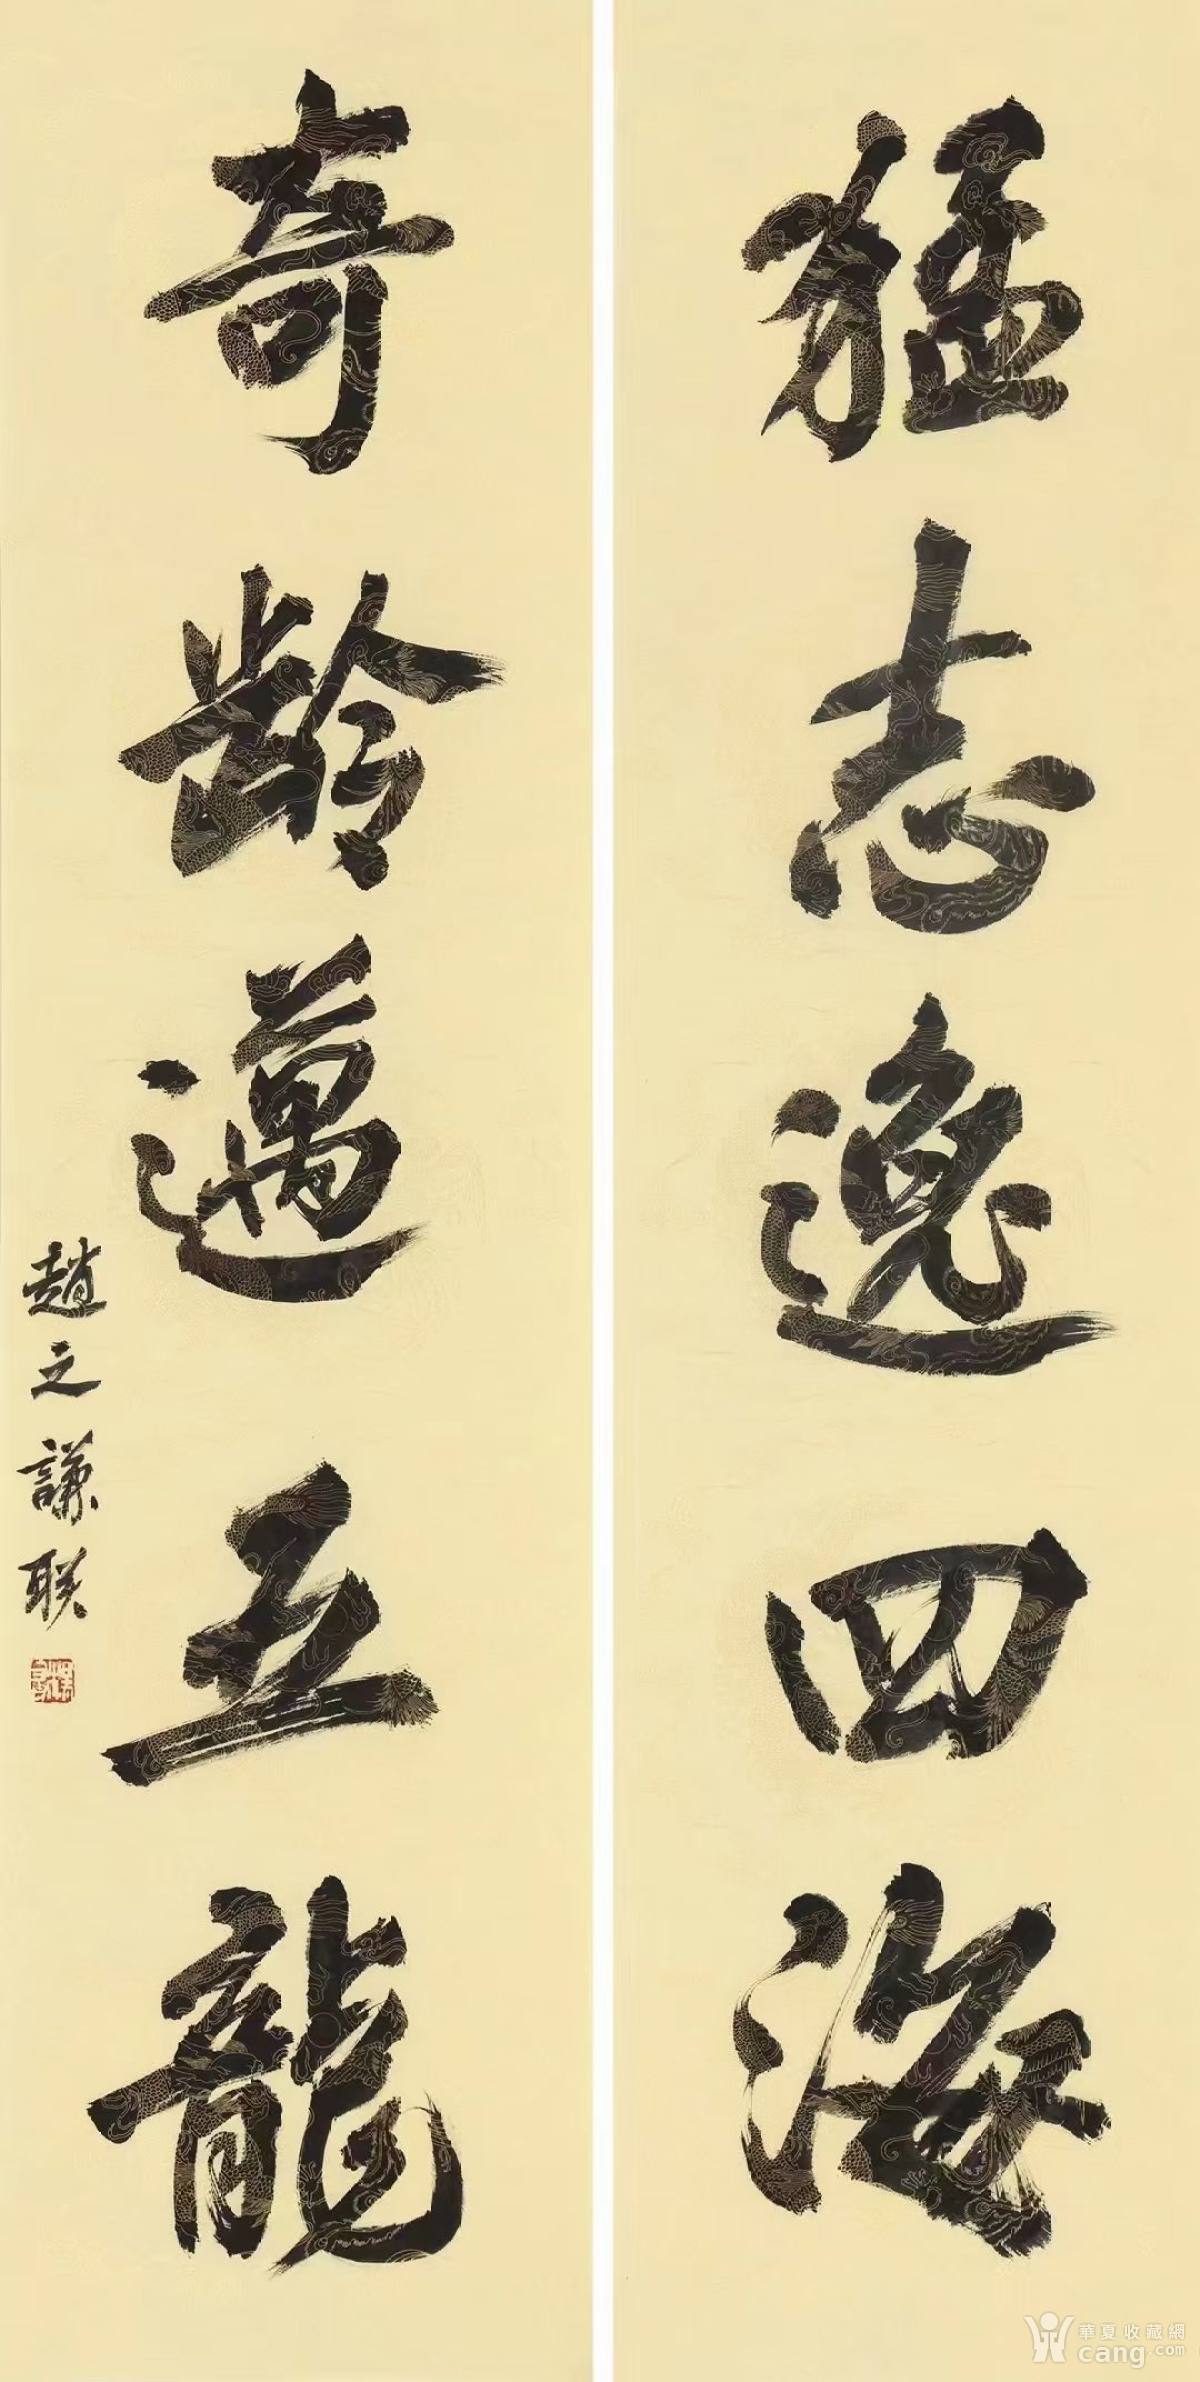 猛志逸四海
奇齡邁五龍
趙之謙联
華夏收藏網
cang.com